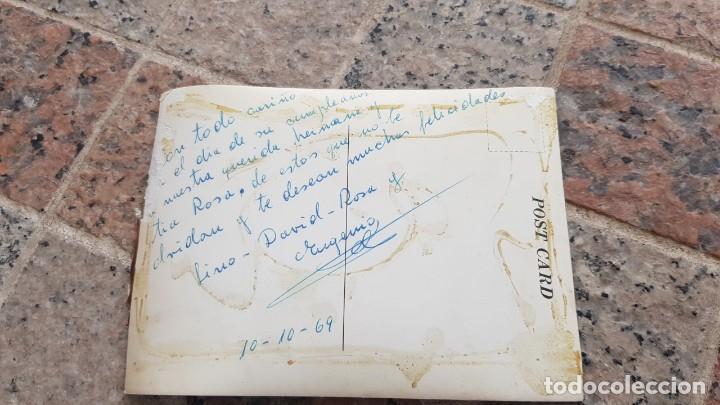 on todo cariño
el dia de su cumpleaños
nuestra querida hermana y
tia Rosa. de estos que no te
olvidan y te desean muchas felicidades
Lino - David - Rosa y
Eugenio
10-10-69
POST CARD
todocoleccion